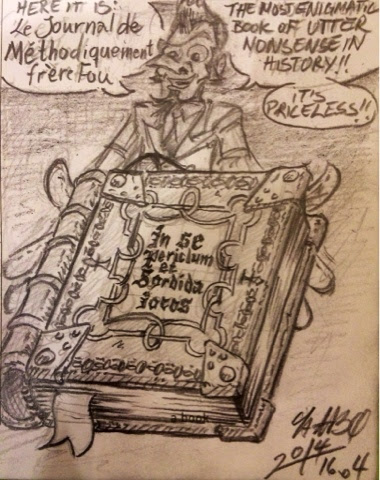 HERE IT IS:
Le Journal de
Méthodiquement
frère Fou
THE MOST ENIGMATIC
BOOK OF UTTER
NONSENSE IN
HISTORY!!
IT'S
PRICELESS!!
In se
periculum
et
Sordida
Iocos
a book
2014
16.04